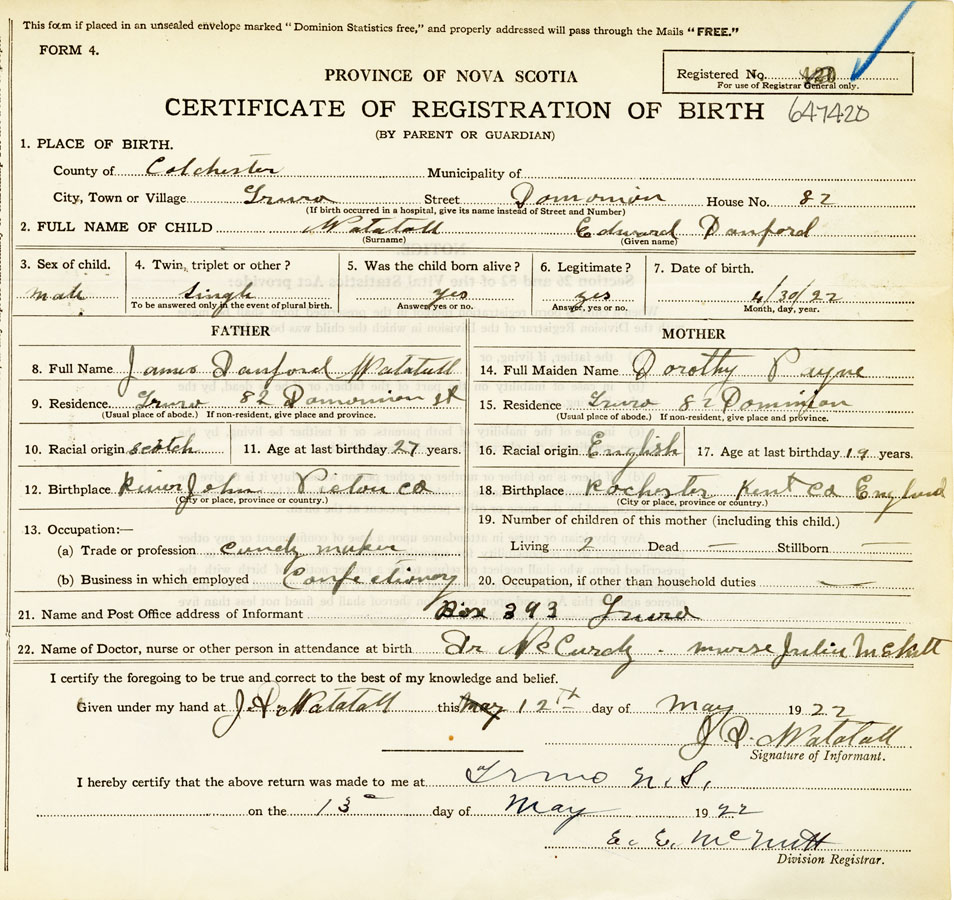 This form if placed in an unsealed envelope marked "Dominion Statistics free," and properly addressed will pass through the Mails "FREE."
FORM 4.
PROVINCE OF NOVA SCOTIA
Registered No. 420
For use of Registrar General only.
CERTIFICATE OF REGISTRATION OF BIRTH 647420
(BY PARENT OR GUARDIAN)
1. PLACE OF BIRTH.
County of Colchester Municipality of
City, Town or Village Truro Street Domonion House No. 82
(If birth occurred in a hospital, give its name instead of Street and Number)
2. FULL NAME OF CHILD Watatall Edward Danford
(Surname) (Given name)
3. Sex of child. 4. Twin, triplet or other? 5. Was the child born alive? 6. Legitimate? 7. Date of birth.
male single yes yes 4/30/22
To be answered only in the event of plural birth. Answer, yes or no. Answer, yes or no. Month, day, year.
FATHER MOTHER
8. Full Name James Danford Watatall 14. Full Maiden Name Dorothy Payne
9. Residence. Truro 82 Domonion st 15. Residence Truro 82 Dominion
(Usual place of abode.) If non-resident, give place and province. (Usual place of abode.) If non-resident, give place and province.
10. Racial origin scotch 11. Age at last birthday 27 years. 16. Racial origin English 17. Age at last birthday 19 years.
12. Birthplace River John Pictou co 18. Birthplace Rochester Kent Co England
(City or place, province or country.) (City or place, province or country.)
13. Occupation:— 19. Number of children of this mother (including this child.)
(a) Trade or profession candy maker Living 2 Dead — Stillborn —
(b) Business in which employed Confectionery 20. Occupation, if other than household duties —
21. Name and Post Office address of Informant Box 393 Truro
22. Name of Doctor, nurse or other person in attendance at birth Dr McCurdy - nurse Julia
I certify the foregoing to be true and correct to the best of my knowledge and belief.
Given under my hand at J D Watatall this 12th day of May 1922
J D. Watatall
Signature of Informant.
I hereby certify that the above return was made to me at Truro N.S.
on the 13 day of May 1922
E. E. McNutt
Division Registrar.